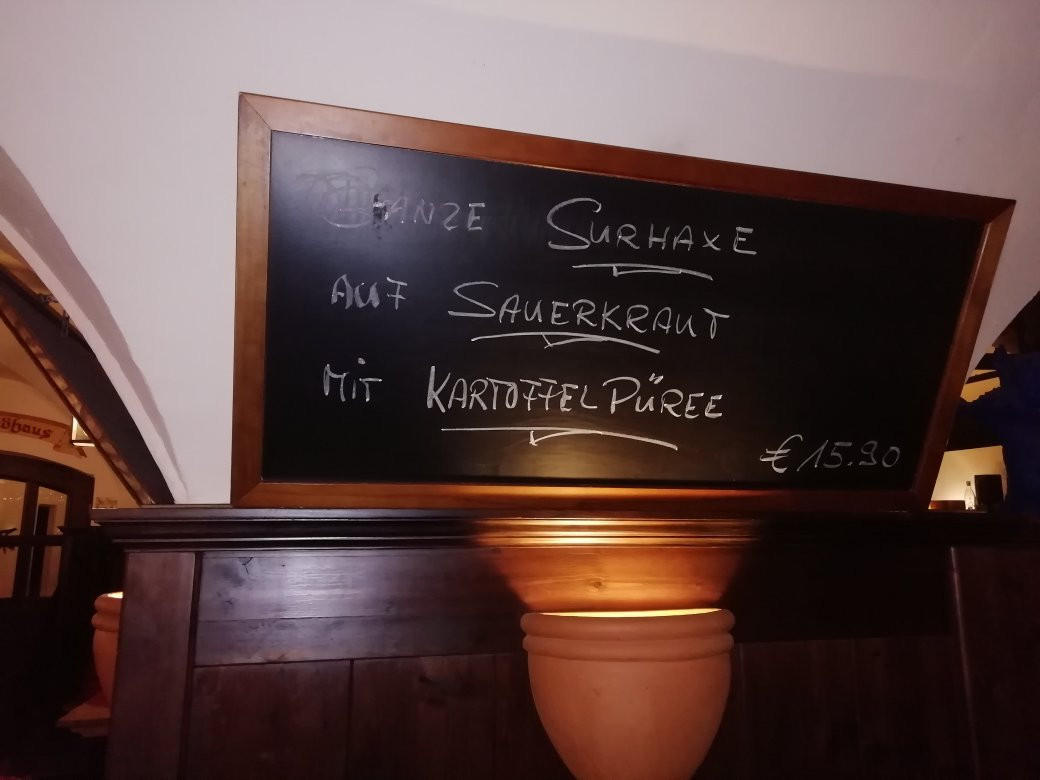 GANZE SURHAXE
AUF SAUERKRAUT
MIT KARTOFFELPÜREE
€ 15.90